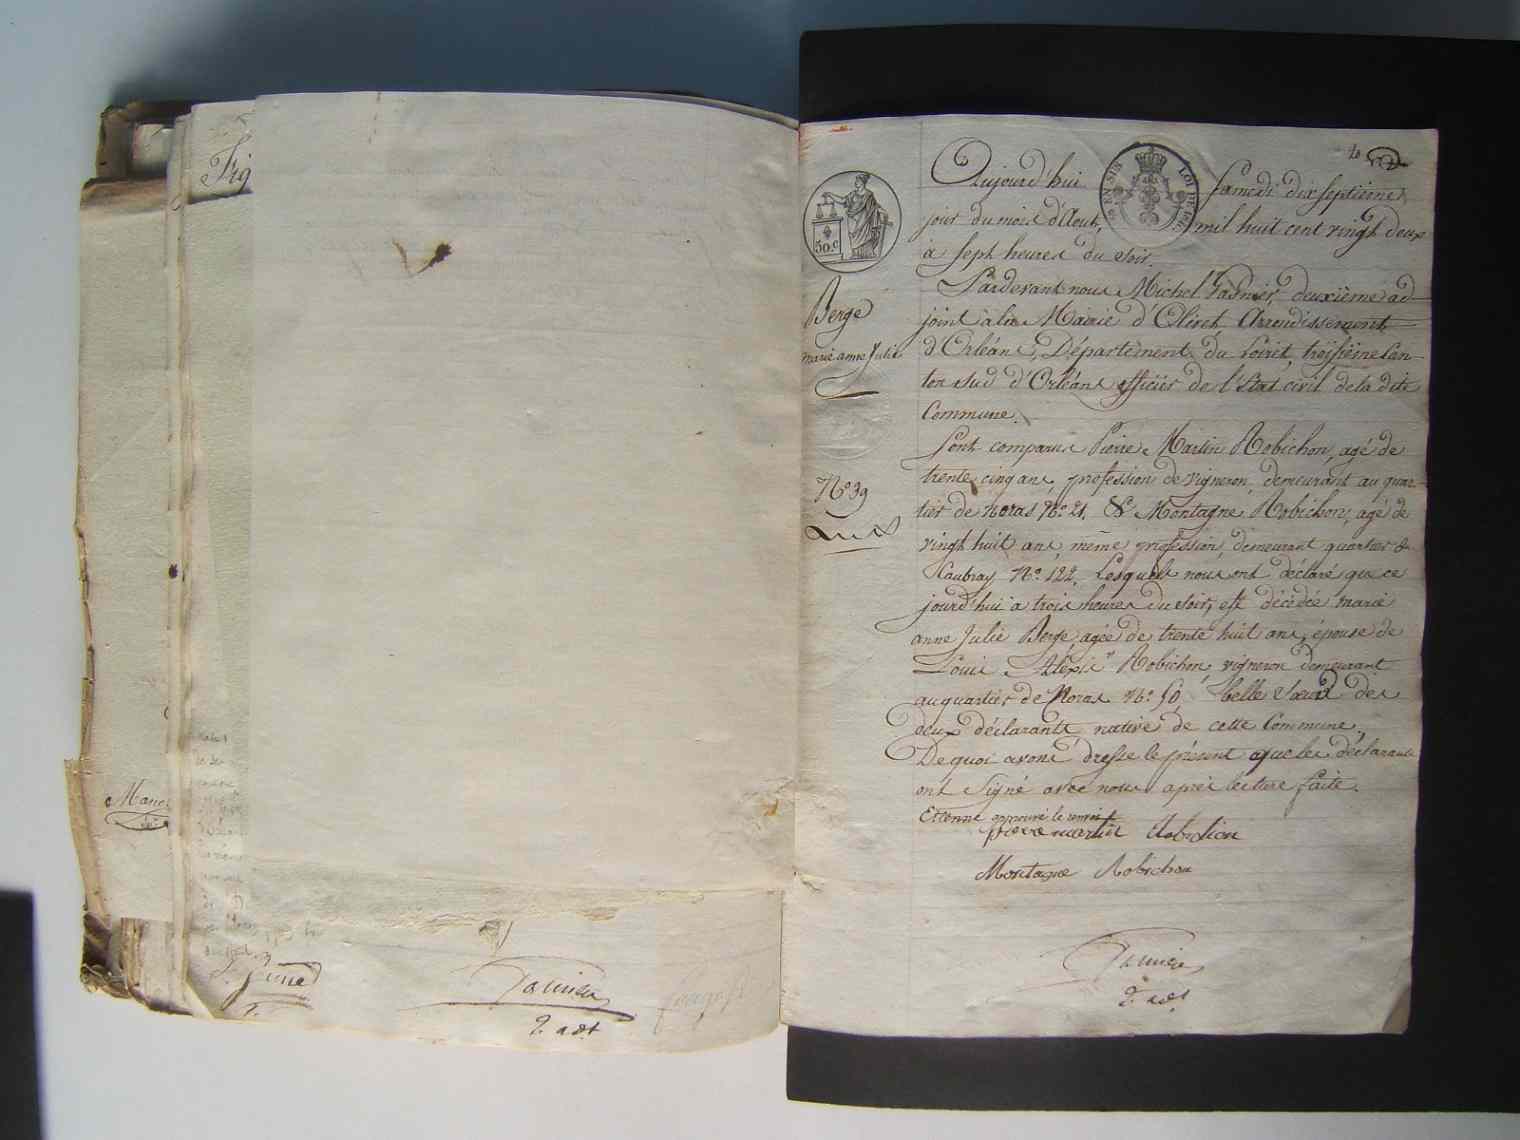 Fig
Manc
Gasnier
2. adt
50.c
Berge
marie anne Julie
N.º 39
Aujourd'hui Samedi dix septieme
jour du mois d'Aout, mil huit cent vingt deux
à sept heures du soir.
Pardevant nous Michel Gasnier, deuxième ad-
joint à la Mairie d'Olivet, Arrondissement
d'Orléans, Département du Loiret, troisième Can-
ton sud d'Orléans officier de l'état civil de la dite
Commune.
Sont comparus Pierre Martin Robichon, agé de
trente cinq ans, profession de vigneron, demeurant au quar-
tier de noras N.º 21. & Montagne Robichon, agé de
vingt huit ans, même profession, demeurant quartier de
Caubray N.º 122. Lesquels nous ont déclaré que ce
jourd'hui à trois heures du soir, est décédée marie
anne Julie Berge agée de trente huit ans, épouse de
Louis Alexis Robichon, vigneron demeurant
au quartier de Noras N.º 50, belle soeur des
deux déclarants native de cette Commune,
De quoi avons dressé le présent que les déclarants
ont signé avec nous après lecture faite.
approuvé le renvoi
pierre martin Robichon
Montagne Robichon
Gasnier
2. adt